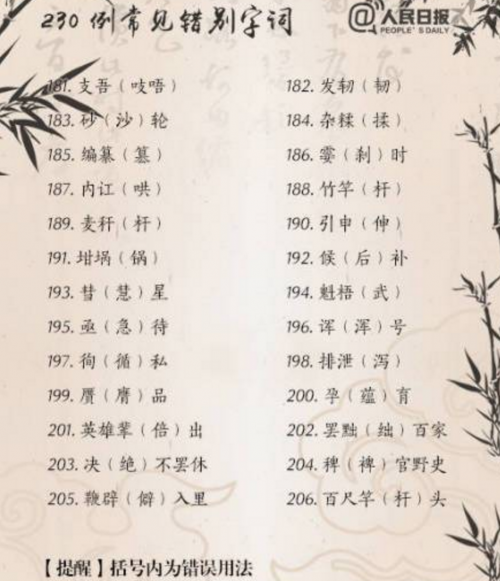 230 例常见错别字词
@人民日报
PEOPLE'S DAILY
181. 支吾（吱唔） 182. 发轫（韧）
183. 砂（沙）轮 184. 杂糅（揉）
185. 编纂（篡） 186. 霎（刹）时
187. 内讧（哄） 188. 竹竿（杆）
189. 麦秆（杆） 190. 引申（伸）
191. 坩埚（锅） 192. 候（后）补
193. 彗（慧）星 194. 魁梧（武）
195. 亟（急）待 196. 诨（浑）号
197. 徇（循）私 198. 排泄（泻）
199. 赝（膺）品 200. 孕（蕴）育
201. 英雄辈（倍）出 202. 罢黜（绌）百家
203. 决（绝）不罢休 204. 稗（裨）官野史
205. 鞭辟（僻）入里 206. 百尺竿（杆）头
【提醒】括号内为错误用法